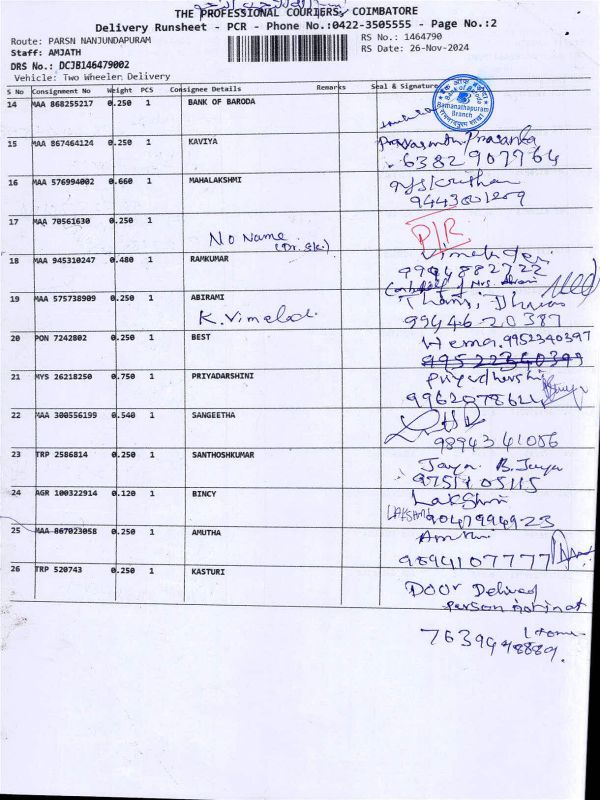 THE PROFESSIONAL COURIERS, COIMBATORE
Delivery Runsheet - PCR - Phone No.:0422-3505555 - Page No.:2
Route: PARSN NANJUNDAPURAM
RS No.: 1464790
Staff: AMJATH
RS Date: 26-Nov-2024
DRS No.: DCJB146479002
Vehicle: Two Wheeler Delivery
S No Consignment No Weight PCS Consignee Details Remarks Seal & Signature
14 MAA 868255217 0.250 1 BANK OF BARODA
Bank of Baroda
Ramanathapuram
Branch
15 MAA 867464124 0.250 1 KAVIYA
Priyanka
6382907764
16 MAA 576994002 0.660 1 MAHALAKSHMI
17 MAA 70561630 0.250 1
No Name
P/R
18 MAA 945310247 0.480 1 RAMKUMAR
9994882722
19 MAA 575738909 0.250 1 ABIRAMI
K. Vimalad.
9944620387
20 PON 7242802 0.250 1 BEST
Hema. 9952340397
21 MYS 26218250 0.750 1 PRIYADARSHINI
22 MAA 300556199 0.540 1 SANGEETHA
9894341056
23 TRP 2586814 0.250 1 SANTHOSHKUMAR
Jaya. B. Jaya
9751105115
24 AGR 100322914 0.120 1 BINCY
Lakshmi
LAKSHMI 9047994923
25 MAA 867023058 0.250 1 AMUTHA
9894107777
26 TRP 520743 0.250 1 KASTURI
Door Delived
person not in at
Home
7639948889.